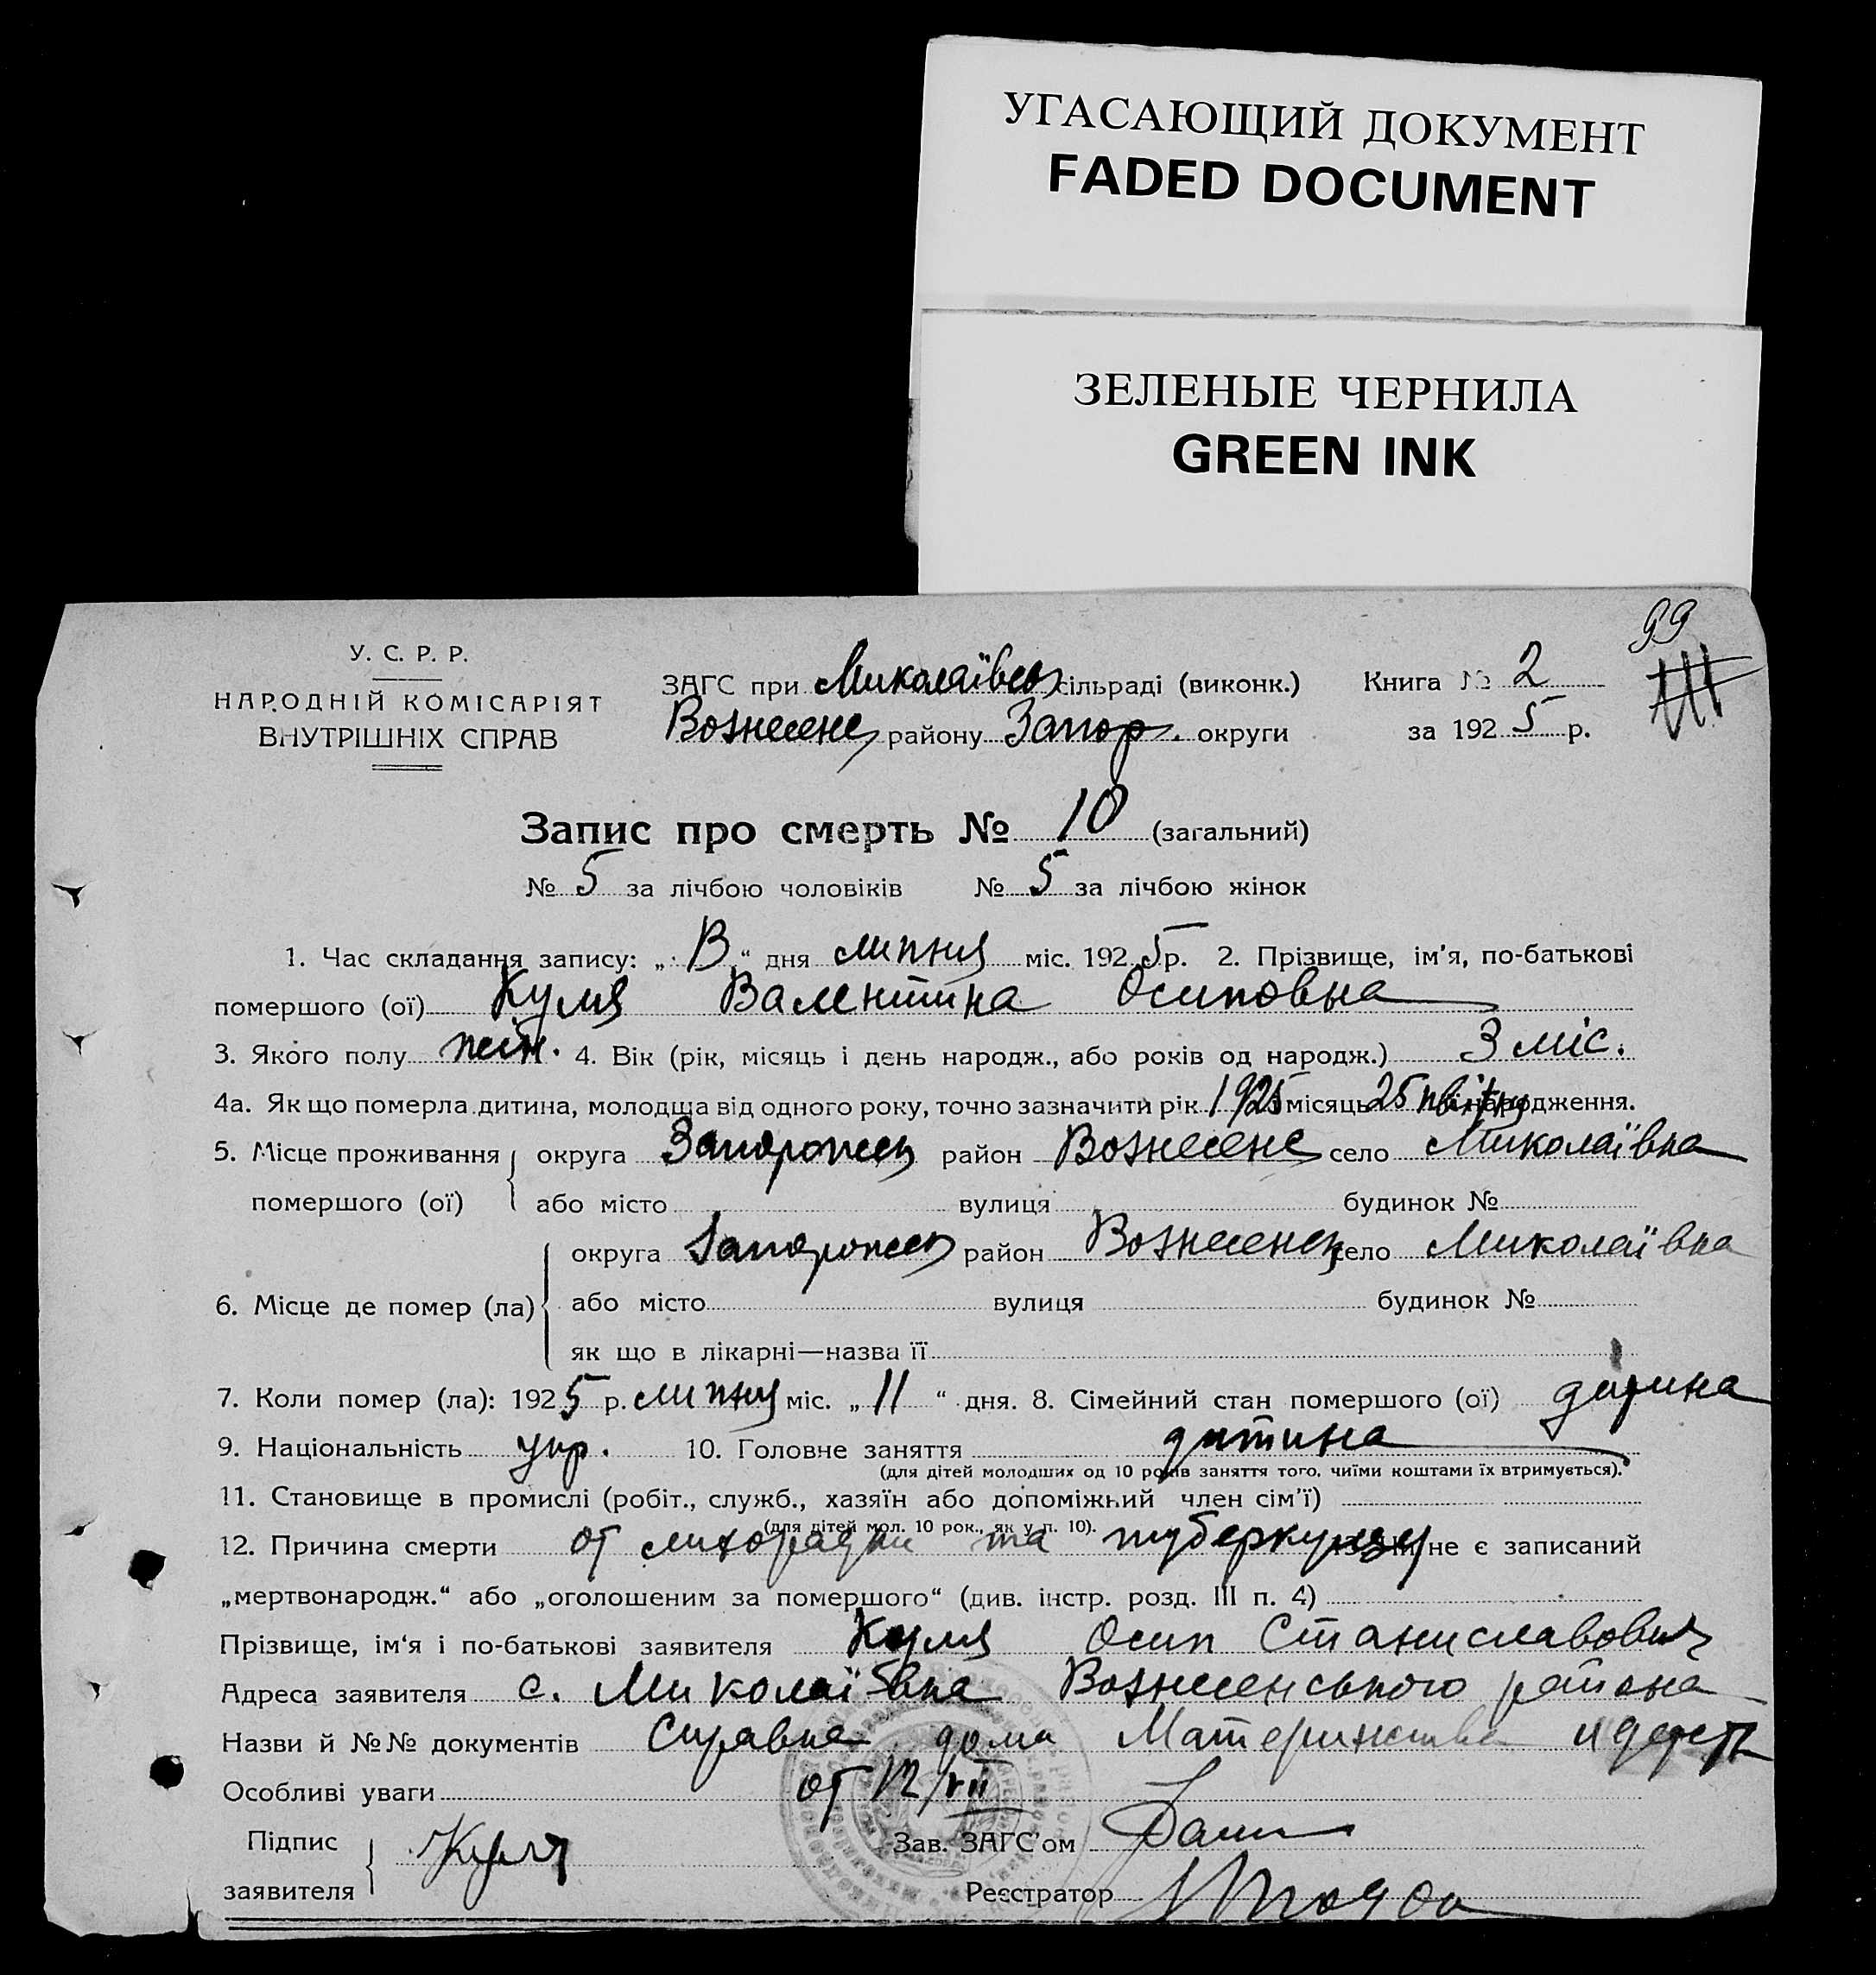 УГАСАЮЩИЙ ДОКУМЕНТ
FADED DOCUMENT
ЗЕЛЕНЫЕ ЧЕРНИЛА
GREEN INK
99
У. С. Р. Р.
НАРОДНІЙ КОМІСАРІЯТ
ВНУТРІШНІХ СПРАВ
ЗАГС при Миколаївськ сільраді (виконк.) Книга № 2
Вознесенс району Запор. округи за 1925 р.
Запис про смерть № 10 (загальний)
№ 5 за лічбою чоловіків № 5 за лічбою жінок
1. Час складання запису: „ " дня липня міс. 1925 р. 2. Прізвище, ім'я, по-батькові
помершого (ої) Куля Валентина Осиповна
3. Якого полу 4. Вік (рік, місяць і день народж., або років од народж.) 3 міс.
4а. Як що померла дитина, молодша від одного року, точно зазначити рік 1925 місяць 25 квітня народження.
5. Місце проживання округа Запорожск район Вознесенс село Миколаївка
помершого (ої) або місто вулиця будинок №
округа Запорожск район Вознесенск село Миколаївка
6. Місце де помер (ла) або місто вулиця будинок №
як що в лікарні—назва її
7. Коли помер (ла): 1925 р. липня міс. „ 11 " дня. 8. Сімейний стан помершого (ої) дитина
9. Національність укр. 10. Головне заняття дитина
(для дітей молодших од 10 років заняття того, чиїми коштами їх втримується).
11. Становище в промислі (робіт., служб., хазяїн або допоміжний член сім'ї)
(для дітей мол. 10 рок., як у п. 10).
12. Причина смерти от лихорадки та туберкульозу 13. не є записаний
„мертвонародж." або „оголошеним за помершого" (див. інстр. розд. III п. 4)
Прізвище, ім'я і по-батькові заявителя Куля Осип Станиславович
Адреса заявителя с. Миколаївка Вознесенського района
Назви й №№ документів Справка дома Материнства и
Особливі уваги от 12/VII
Підпис Куля Зав. ЗАГС'ом
заявителя Реєстратор